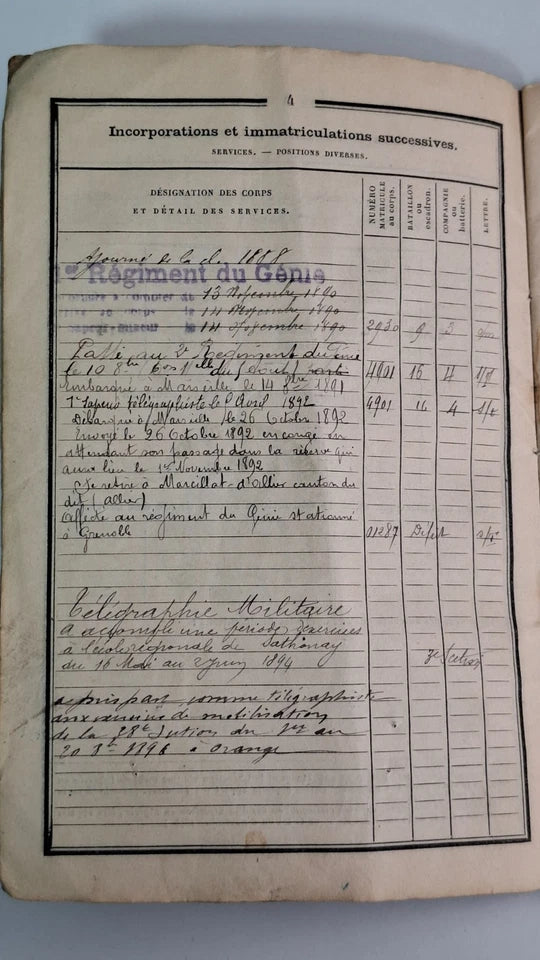 4
Incorporations et immatriculations successives.
SERVICES. — POSITIONS DIVERSES.
DÉSIGNATION DES CORPS
ET DÉTAIL DES SERVICES.
NUMÉRO MATRICULE au corps.
BATAILLON ou escadron.
COMPAGNIE ou batterie.
LETTRE.
Ajourné de la cl. 1888
1er Régiment du Génie
à compter du 13 Novembre 1890
au corps le 14 Novembre 1890
sapeur-mineur le 14 Novembre 1890 2930 9 3
Passé au 2e Régiment du Génie
le 10 8bre 4901 15 4
Embarqué à Marseille le 14 8bre 1891
1er Sapeur télégraphiste le 1er Avril 1892 4901 " 4
Débarqué à Marseille le 26 Octobre 1892
Envoyé le 26 Octobre 1892 en congé en
attendant son passage dans la réserve qui
aura lieu le 1er Novembre 1892
Se retire à Marcillat-d'Allier canton du
dit (Allier)
Affecté au régiment du Génie stationné
à Grenoble 01287 Dépôt
Télégraphie Militaire
a accompli une période d'exercices
à l'école régionale de Sathonay
du 16 Mai au 2 juin 1894
a pris part comme télégraphiste
aux exercices de mobilisation
de la 28e Section du 1er au
20 8bre 1896 à Orange